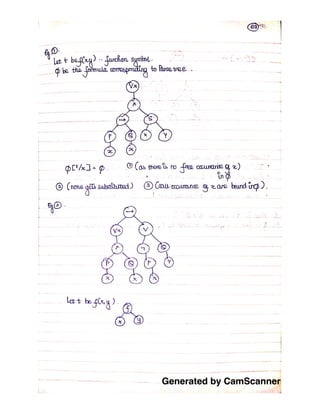 Eg ①.
Let t be f(x,y) - function symbol
φ be the formula corresponding to Parse tree.
∀x
∧
→ S
P Q X Y
x x
φ[t/x] = φ ① (as there is no free occurrence of x)
in φ
② (none gets substituted) ③ (all occurrence of x are bound in φ).
Eg ②.
→
∀x ∨
∧ ¬ Q
P Q P Y
x x x
Let t be f(x,y)
f
x y
Generated by CamScanner